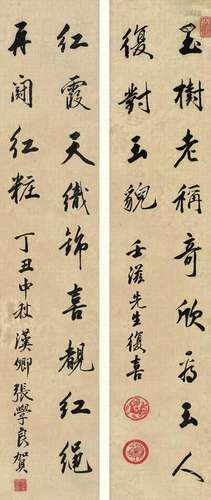 樹老稱奇欣為玉人
復對玉貌
壬滋先生復喜
紅霞天織錦喜覩紅繩
再紅粧
丁丑中秋漢卿張學良賀